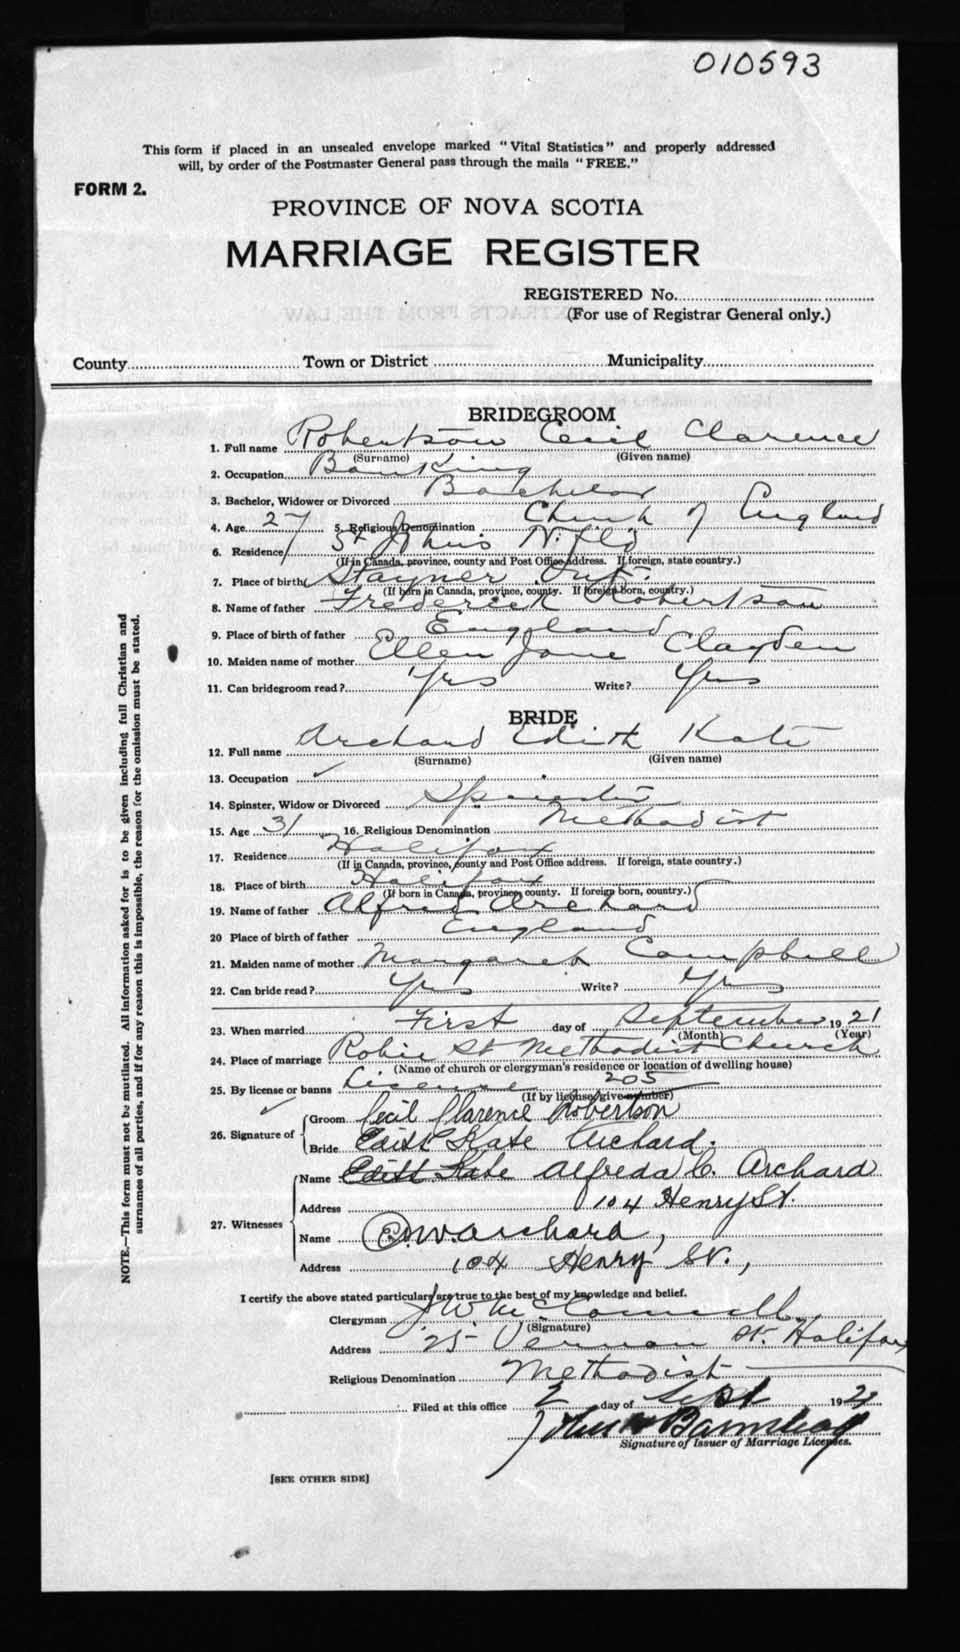 010593
This form if placed in an unsealed envelope marked "Vital Statistics" and properly addressed
will, by order of the Postmaster General pass through the mails "FREE."
FORM 2.
PROVINCE OF NOVA SCOTIA
MARRIAGE REGISTER
REGISTERED No.
(For use of Registrar General only.)
County Town or District Municipality
BRIDEGROOM
1. Full name Robertson Cecil Clarence
(Surname) (Given name)
2. Occupation Banking
3. Bachelor, Widower or Divorced Bachelor
4. Age 27 5. Religious Denomination Church of England
6. Residence St Johns Nfld
(If in Canada, province, county and Post Office address. If foreign, state country.)
7. Place of birth Stayner Ont.
(If born in Canada, province, county. If foreign born, country.)
8. Name of father Frederick Robertson
9. Place of birth of father England
10. Maiden name of mother Ellen Jane Clayden
11. Can bridegroom read? Yes Write? Yes
BRIDE
12. Full name Archard Edith Kate
(Surname) (Given name)
13. Occupation ✓
14. Spinster, Widow or Divorced Spinster
15. Age 31 16. Religious Denomination Methodist
17. Residence Halifax
(If in Canada, province, county and Post Office address. If foreign, state country.)
18. Place of birth Halifax
(If born in Canada, province, county. If foreign born, country.)
19. Name of father Alfred Archard
20 Place of birth of father England
21. Maiden name of mother Margaret Campbell
22. Can bride read? Yes Write? Yes
23. When married First day of September 1921
(Month) (Year)
24. Place of marriage Robie St Methodist Church
(Name of church or clergyman's residence or location of dwelling house)
25. By license or banns License 205
(If by license, give number)
✓
26. Signature of Groom Cecil Clarence Robertson
Bride Edith Kate Archard.
27. Witnesses Name Edith Kate Alfreda C. Archard
Address 104 Henry St.
Name E.W. Archard,
Address 104 Henry St.,
I certify the above stated particulars are true to the best of my knowledge and belief.
Clergyman J W McConnell
(Signature)
Address 25 Vernon St. Halifax
Religious Denomination Methodist
Filed at this office 2 day of Sept 1921
Signature of Issuer of Marriage Licenses.
[SEE OTHER SIDE]
NOTE.—This form must not be mutilated. All information asked for is to be given including full Christian and
surnames of all parties, and if for any reason this is impossible, the reason for the omission must be stated.